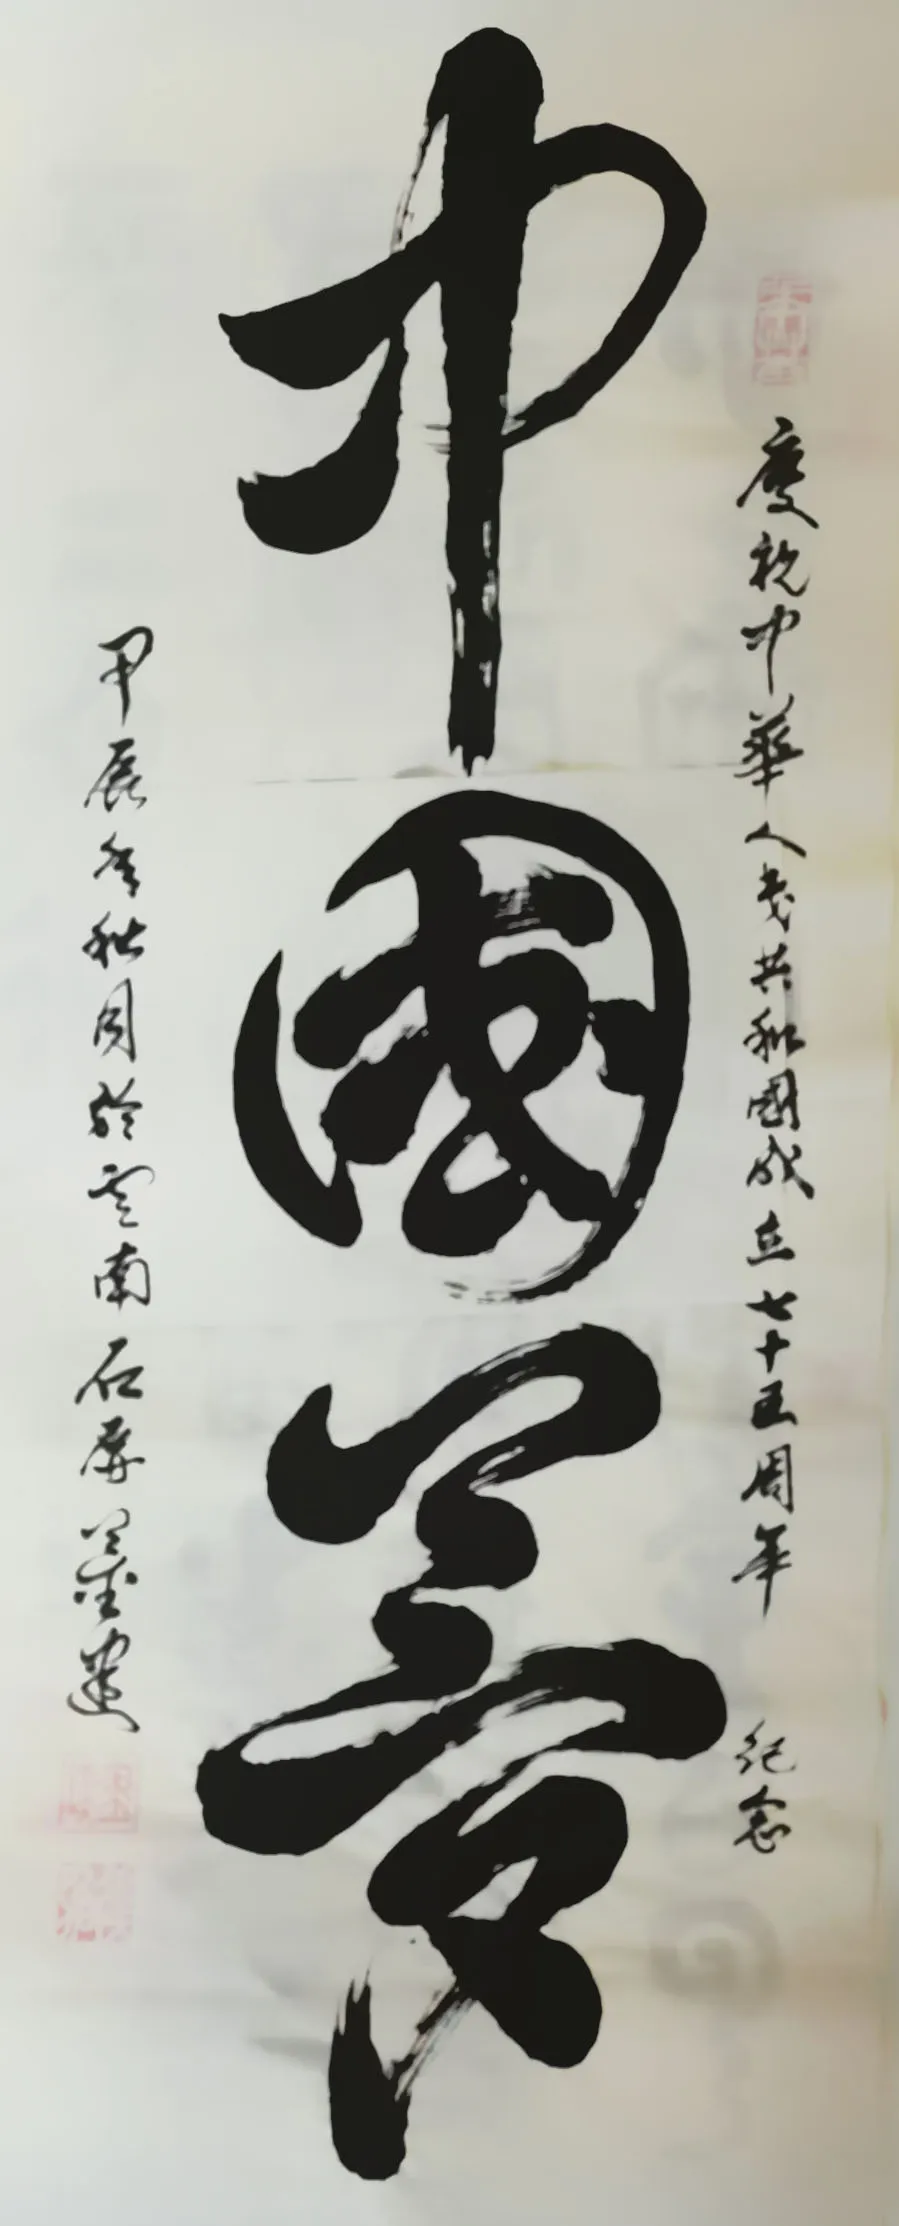 慶祝中華人民共和國成立七十五周年 紀念
中國夢
甲辰年秋月於雲南石屏